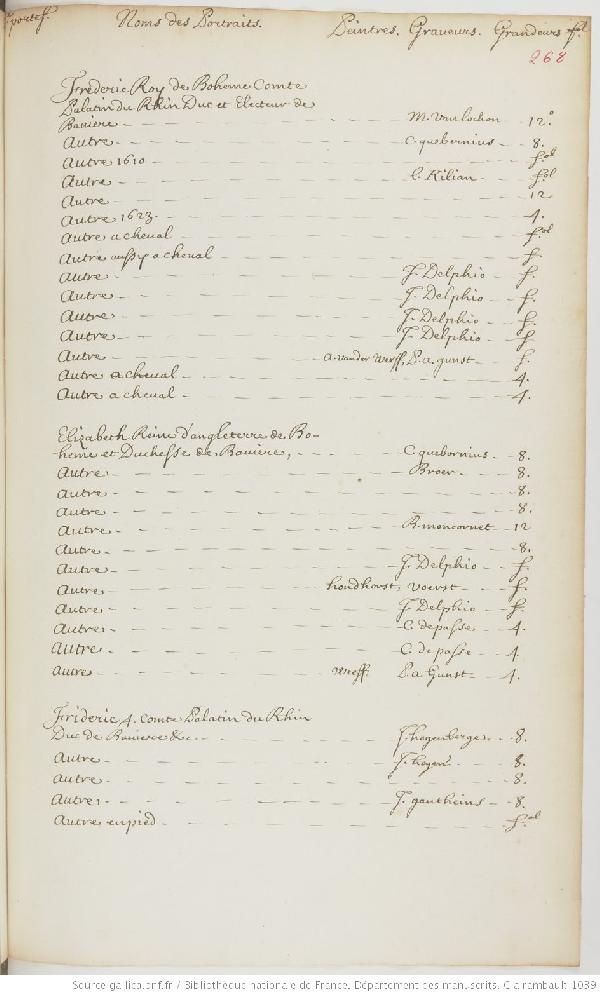 portef. Noms des Portraits. Peintres. Graveurs. Grandeurs fol
268
Fréderic Roy de Boheme Comte
Palatin du Rhin Duc et Electeur de
Baviere M. Vanlochon 12.º
Autre C. queborinius 8.
Autre 1610 fol
Autre L. Kilian fol
Autre 12
Autre 1623 4.
Autre a cheval fol
Autre aussy a cheval f.
Autre J. Delphio f.
Autre J. Delphio f.
Autre J. Delphio f.
Autre J. Delphio f.
Autre a. vander Werff, P. a. gunst f.
Autre a cheval 4.
Autre a cheval 4.
Elizabeth Reine d'angleterre de Bo-
heme et Duchesse de Baviere, C. quebornius 8.
Autre Broer 8.
Autre 8.
Autre 8.
Autre B. moncornet 12
Autre 8.
Autre J. Delphio f.
Autre hondhorst, voerst f.
Autre J. Delphio f.
Autre C. de passe 4.
Autre C. de passe 4.
Autre Werff. P. a. Gunst 4.
Frideric 4. Comte Palatin du Rhin
Duc de Baviere &c. f. hogenberge 8.
Autre f. hogen 8.
Autre 8.
Autre J. gautheins 8.
Autre en pied f.ol
Source gallica.bnf.fr / Bibliothèque nationale de France. Département des manuscrits. Clairambault 1039